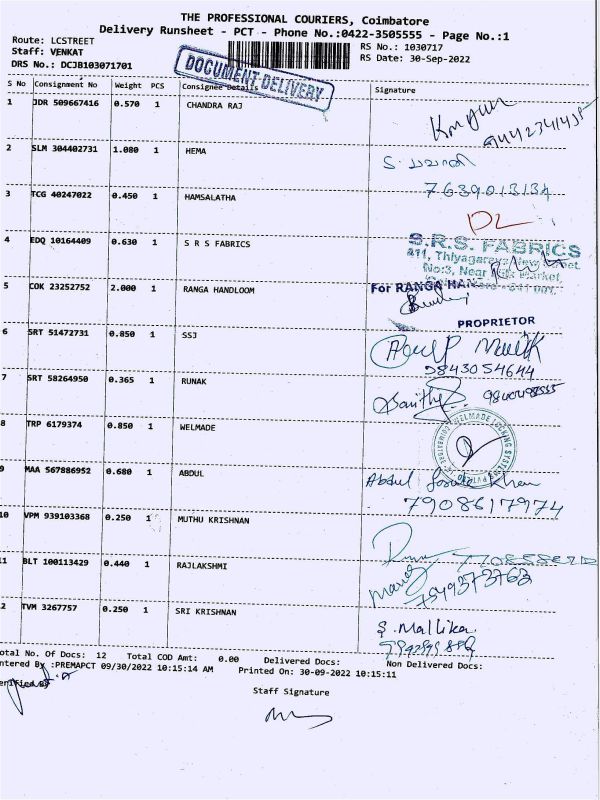 THE PROFESSIONAL COURIERS, Coimbatore
Delivery Runsheet - PCT - Phone No.:0422-3505555 - Page No.:1
Route: LCSTREET
Staff: VENKAT
DRS No.: DCJB103071701
RS No.: 1030717
RS Date: 30-Sep-2022
DOCUMENT DELIVERY
S No Consignment No Weight PCS Consignee Details Signature
1 JDR 509667416 0.570 1 CHANDRA RAJ
2 SLM 304402731 1.080 1 HEMA
7639013134
3 TCG 40247022 0.450 1 HAMSALATHA
4 EDQ 10164409 0.630 1 S R S FABRICS
S.R.S. FABRICS
No:3, Near
5 COK 23252752 2.000 1 RANGA HANDLOOM
For RANGA HAN
PROPRIETOR
6 SRT 51472731 0.850 1 SSJ
9843054644
7 SRT 58264950 0.365 1 RUNAK
8 TRP 6179374 0.850 1 WELMADE
WELMADE LOCKING SYSTEMS
9 MAA 567886952 0.680 1 ABDUL
Abdul Khan
7908617974
10 VPM 939103368 0.250 1 MUTHU KRISHNAN
11 BLT 100113429 0.440 1 RAJLAKSHMI
7549373763
2 TVM 3267757 0.250 1 SRI KRISHNAN
S. Mallika
otal No. Of Docs: 12 Total COD Amt: 0.00 Delivered Docs: Non Delivered Docs:
ntered By :PREMAPCT 09/30/2022 10:15:14 AM Printed On: 30-09-2022 10:15:11
erified By
Staff Signature